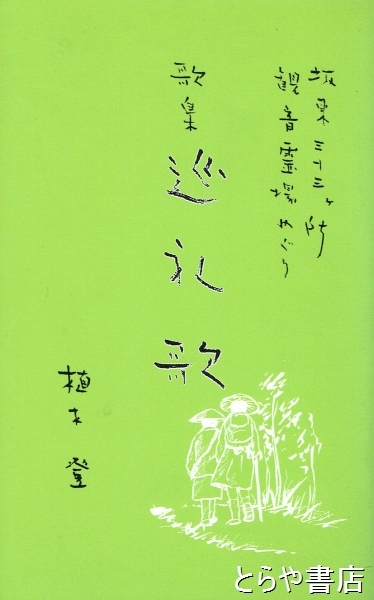 坂東三十三ヶ所
観音霊場めぐり
歌集
巡礼歌
植木登
とらや書店